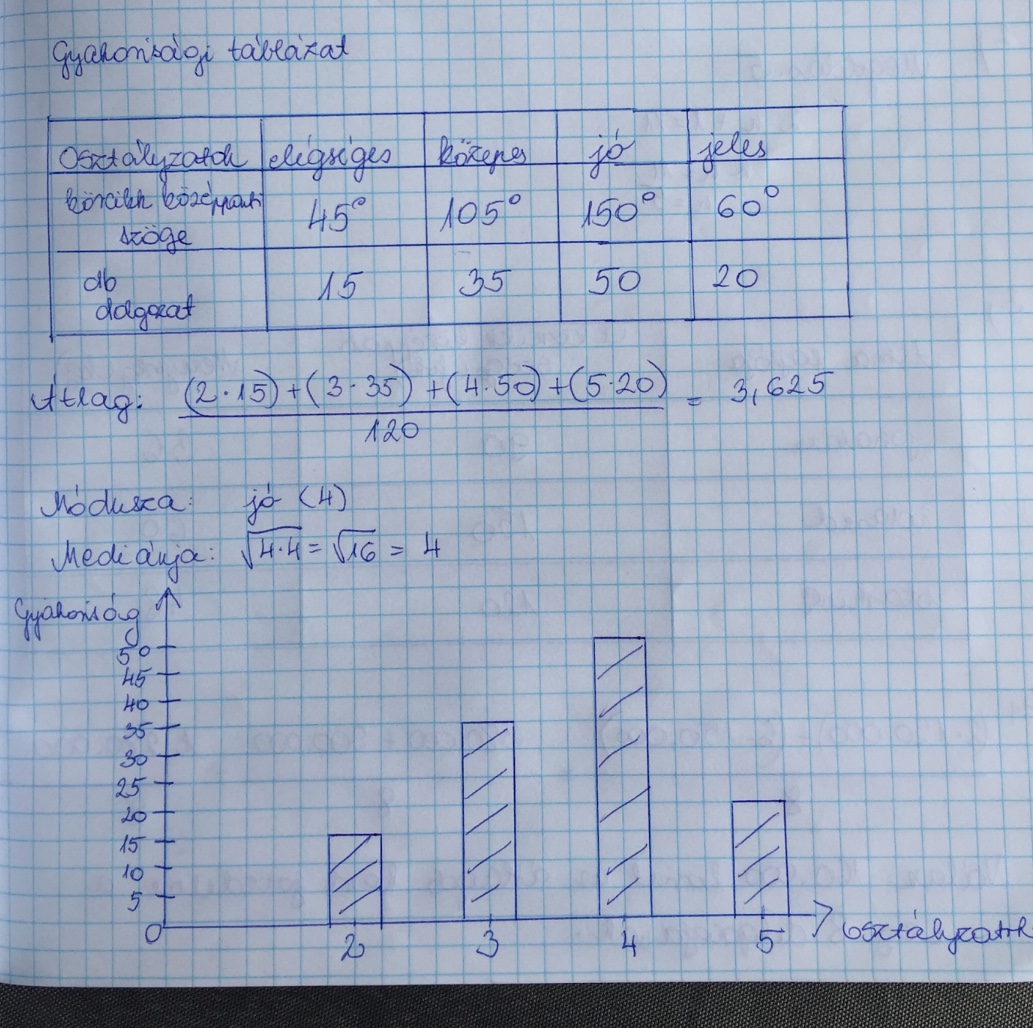 Gyakorisági táblázat
Osztályzatok elégséges közepes jó jeles
körcikk középponti szöge 45° 105° 150° 60°
db dolgozat 15 35 50 20
Átlag: (2·15)+(3·35)+(4·50)+(5·20) / 120 = 3,625
Módusza: jó (4)
Mediánja: √4·4 = √16 = 4
Gyakoriság
50
45
40
35
30
25
20
15
10
5
0 2 3 4 5 osztályzatok